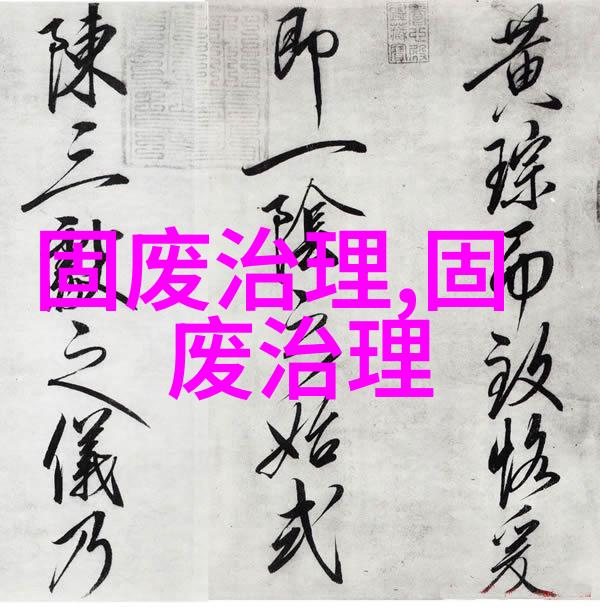 黄琮而致恪爰
即一陰之始式
陳三獻之儀乃
固废治理,固
废治理